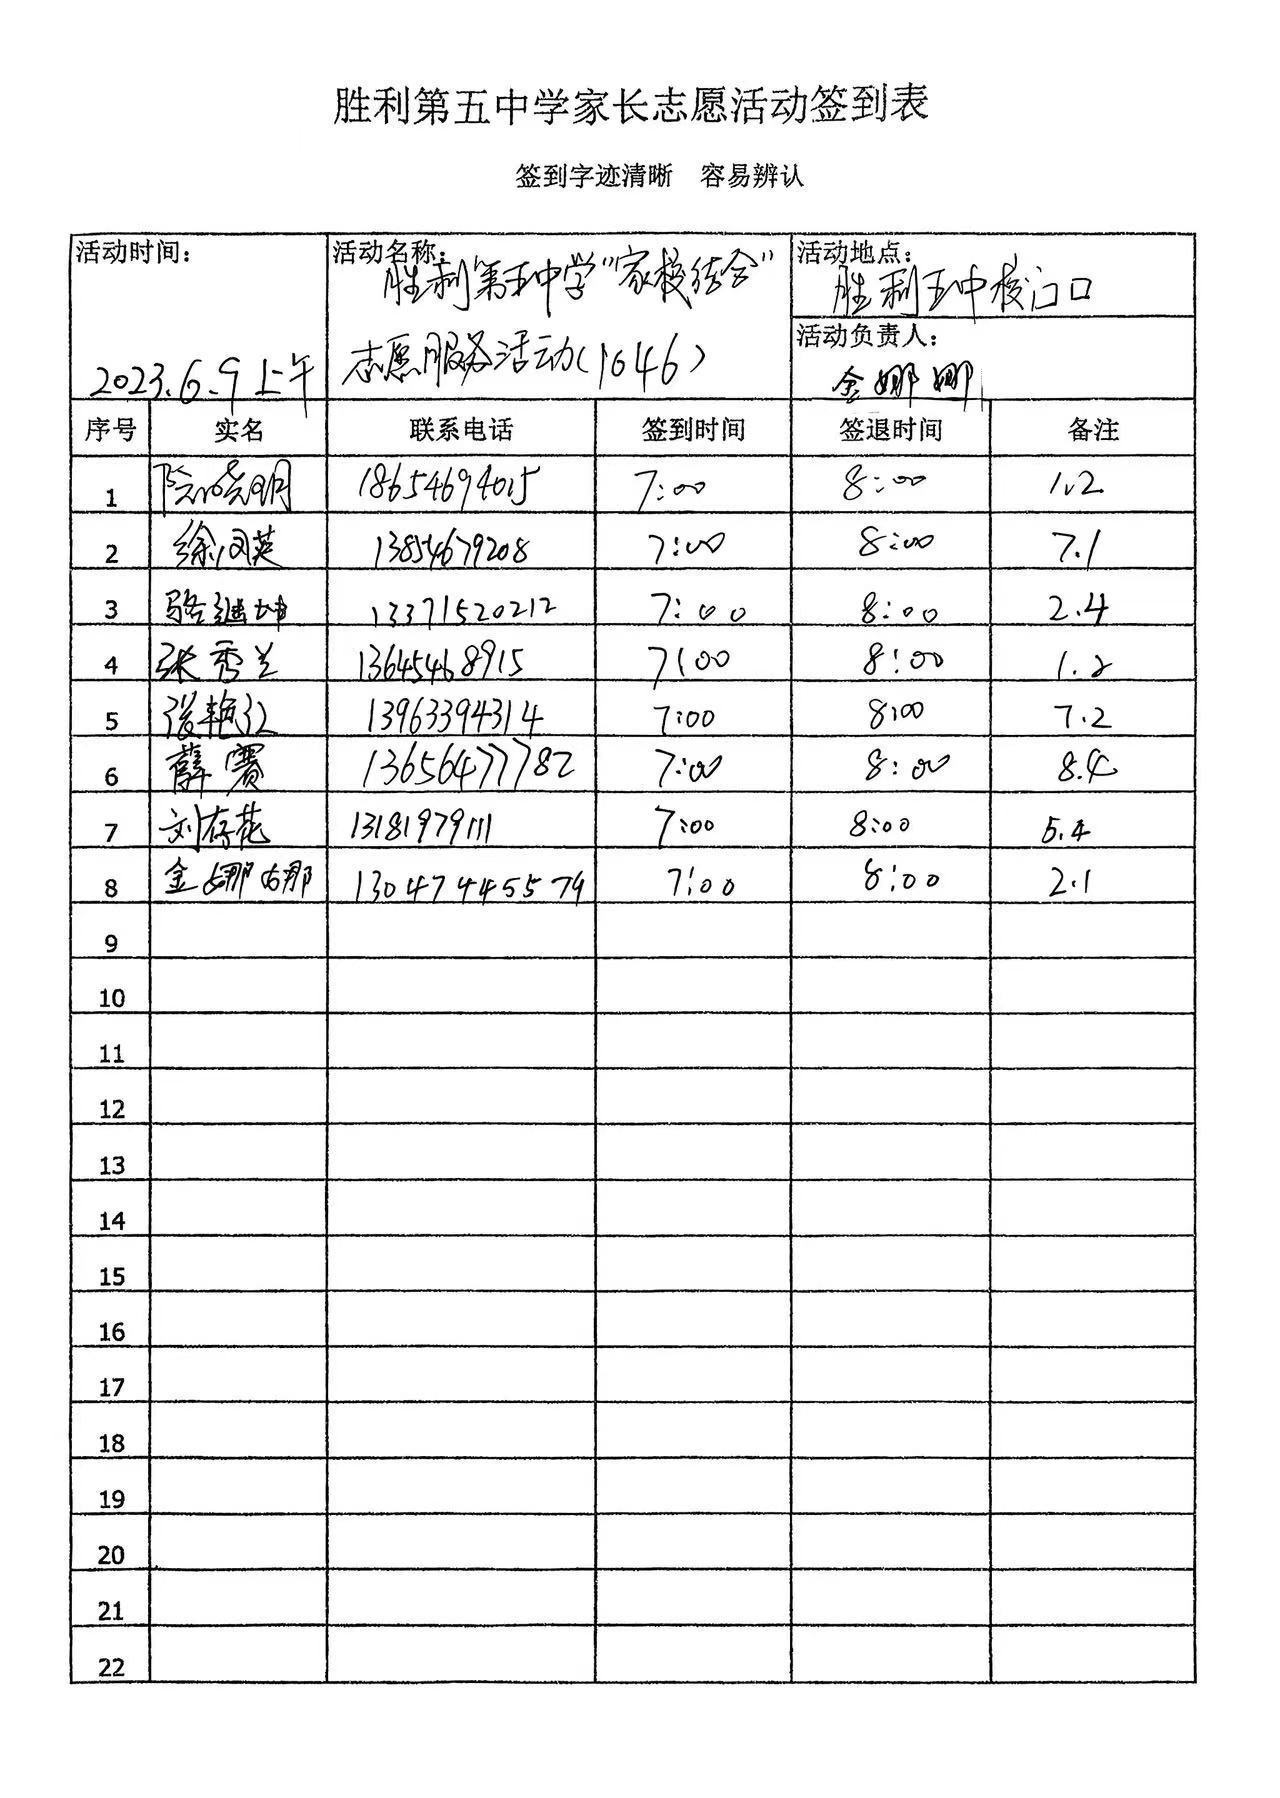 胜利第五中学家长志愿活动签到表
签到字迹清晰 容易辨认
活动时间：
2023.6.9上午
活动名称：
胜利第五中学“家校结合”
志愿服务活动(1046)
活动地点：
胜利五中校门口
活动负责人：
金娜娜
序号 实名 联系电话 签到时间 签退时间 备注
1 阮晓明 18654694015 7:00 8:00 1.2
2 徐凤英 13854679208 7:00 8:00 7.1
3 骆继坤 13371520212 7:00 8:00 2.4
4 张秀兰 13645468915 7:00 8:00 1.2
5 张艳红 13963394314 7:00 8:00 7.2
6 薛赛 13656477782 7:00 8:00 8.4
7 刘存花 13181979111 7:00 8:00 5.4
8 金娜娜 130474445579 7:00 8:00 2.1
9
10
11
12
13
14
15
16
17
18
19
20
21
22